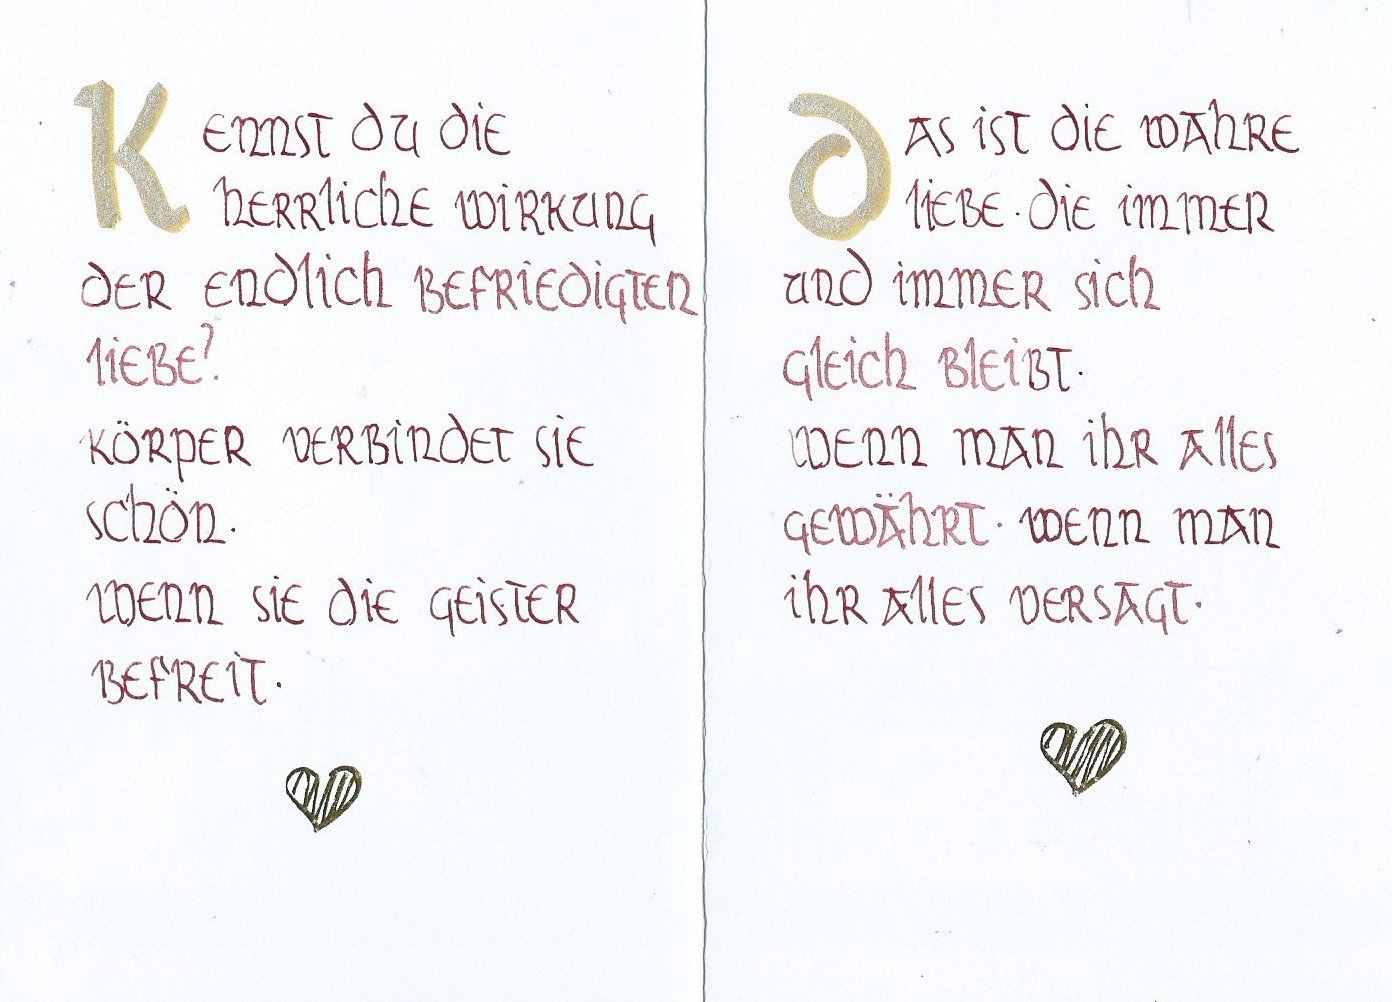 Kennst du die
herrliche Wirkung
der endlich befriedigten
Liebe?
Körper verbindet sie
schön.
wenn sie die Geister
befreit.
Das ist die wahre
Liebe. die immer
und immer sich
gleich bleibt.
wenn man ihr alles
gewährt. wenn man
ihr alles versagt.